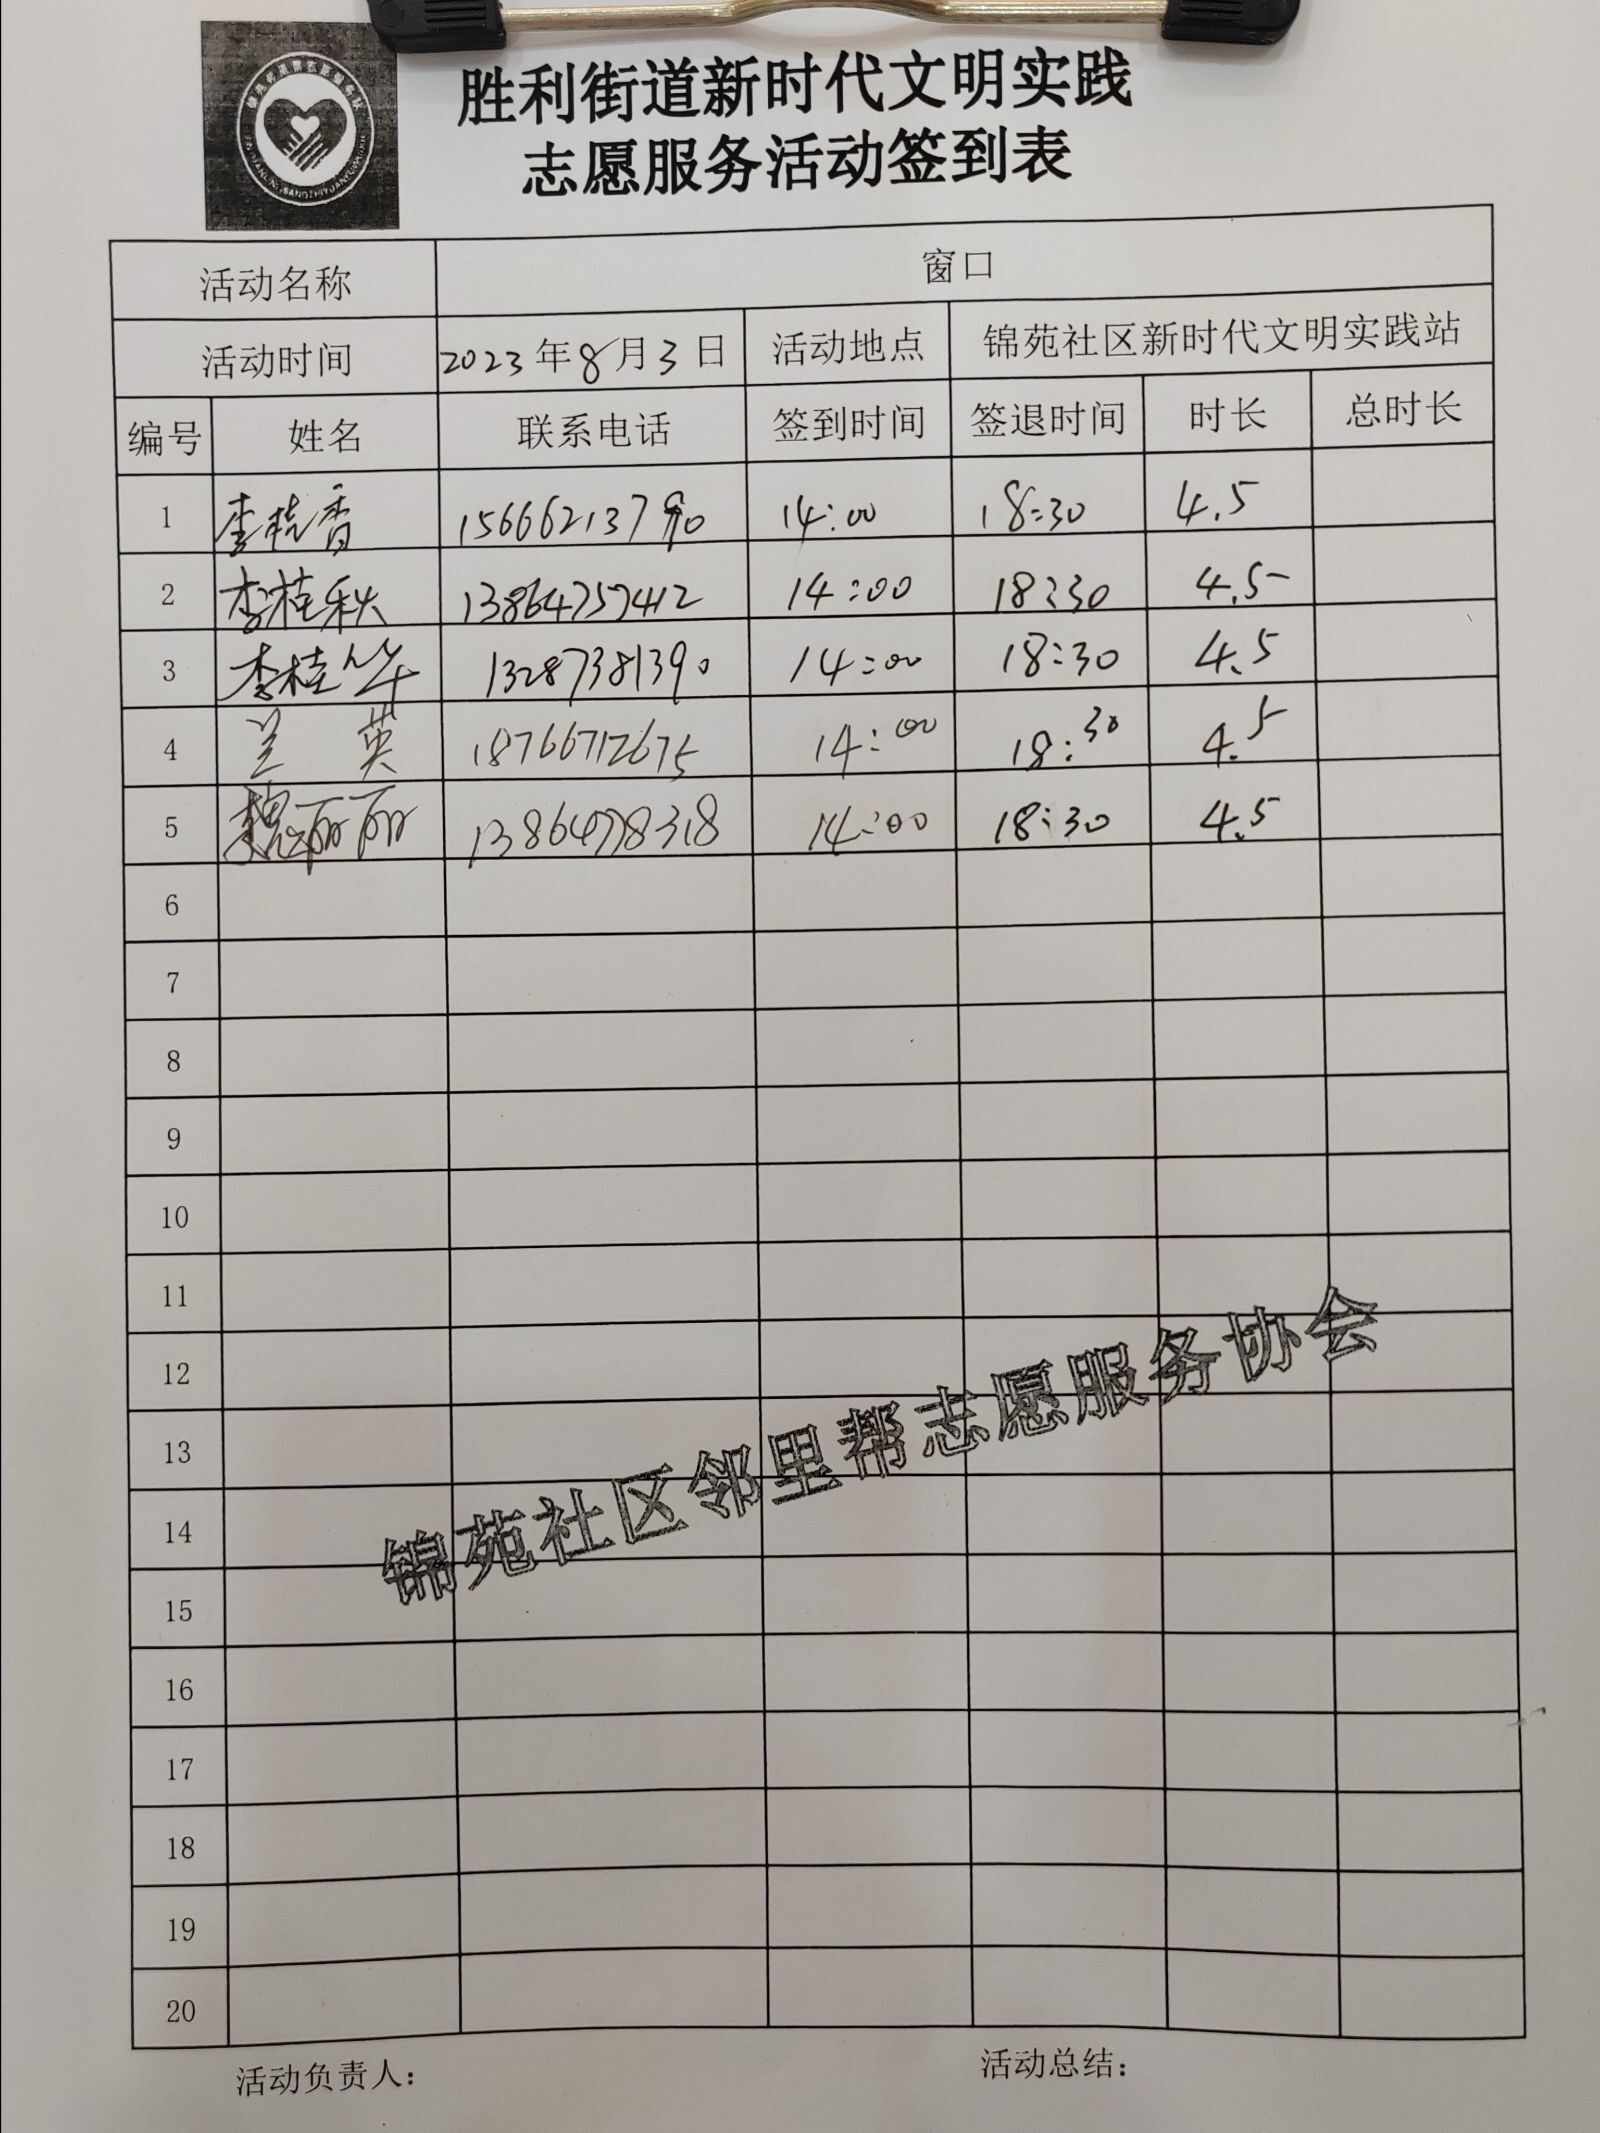 胜利街道新时代文明实践
志愿服务活动签到表
活动名称 窗口
活动时间 2023年8月3日 活动地点 锦苑社区新时代文明实践站
编号 姓名 联系电话 签到时间 签退时间 时长 总时长
1 李桂香 15666213790 14:00 18:30 4.5
2 李桂秋 13864757412 14:00 18:30 4.5
3 李桂华 13287381390 14:00 18:30 4.5
4 兰英 18766712675 14:00 18:30 4.5
5 魏丽丽 13864778318 14:00 18:30 4.5
6
7
8
9
10
11
12
13
14
15
16
17
18
19
20
锦苑社区邻里帮志愿服务协会
活动负责人： 活动总结：